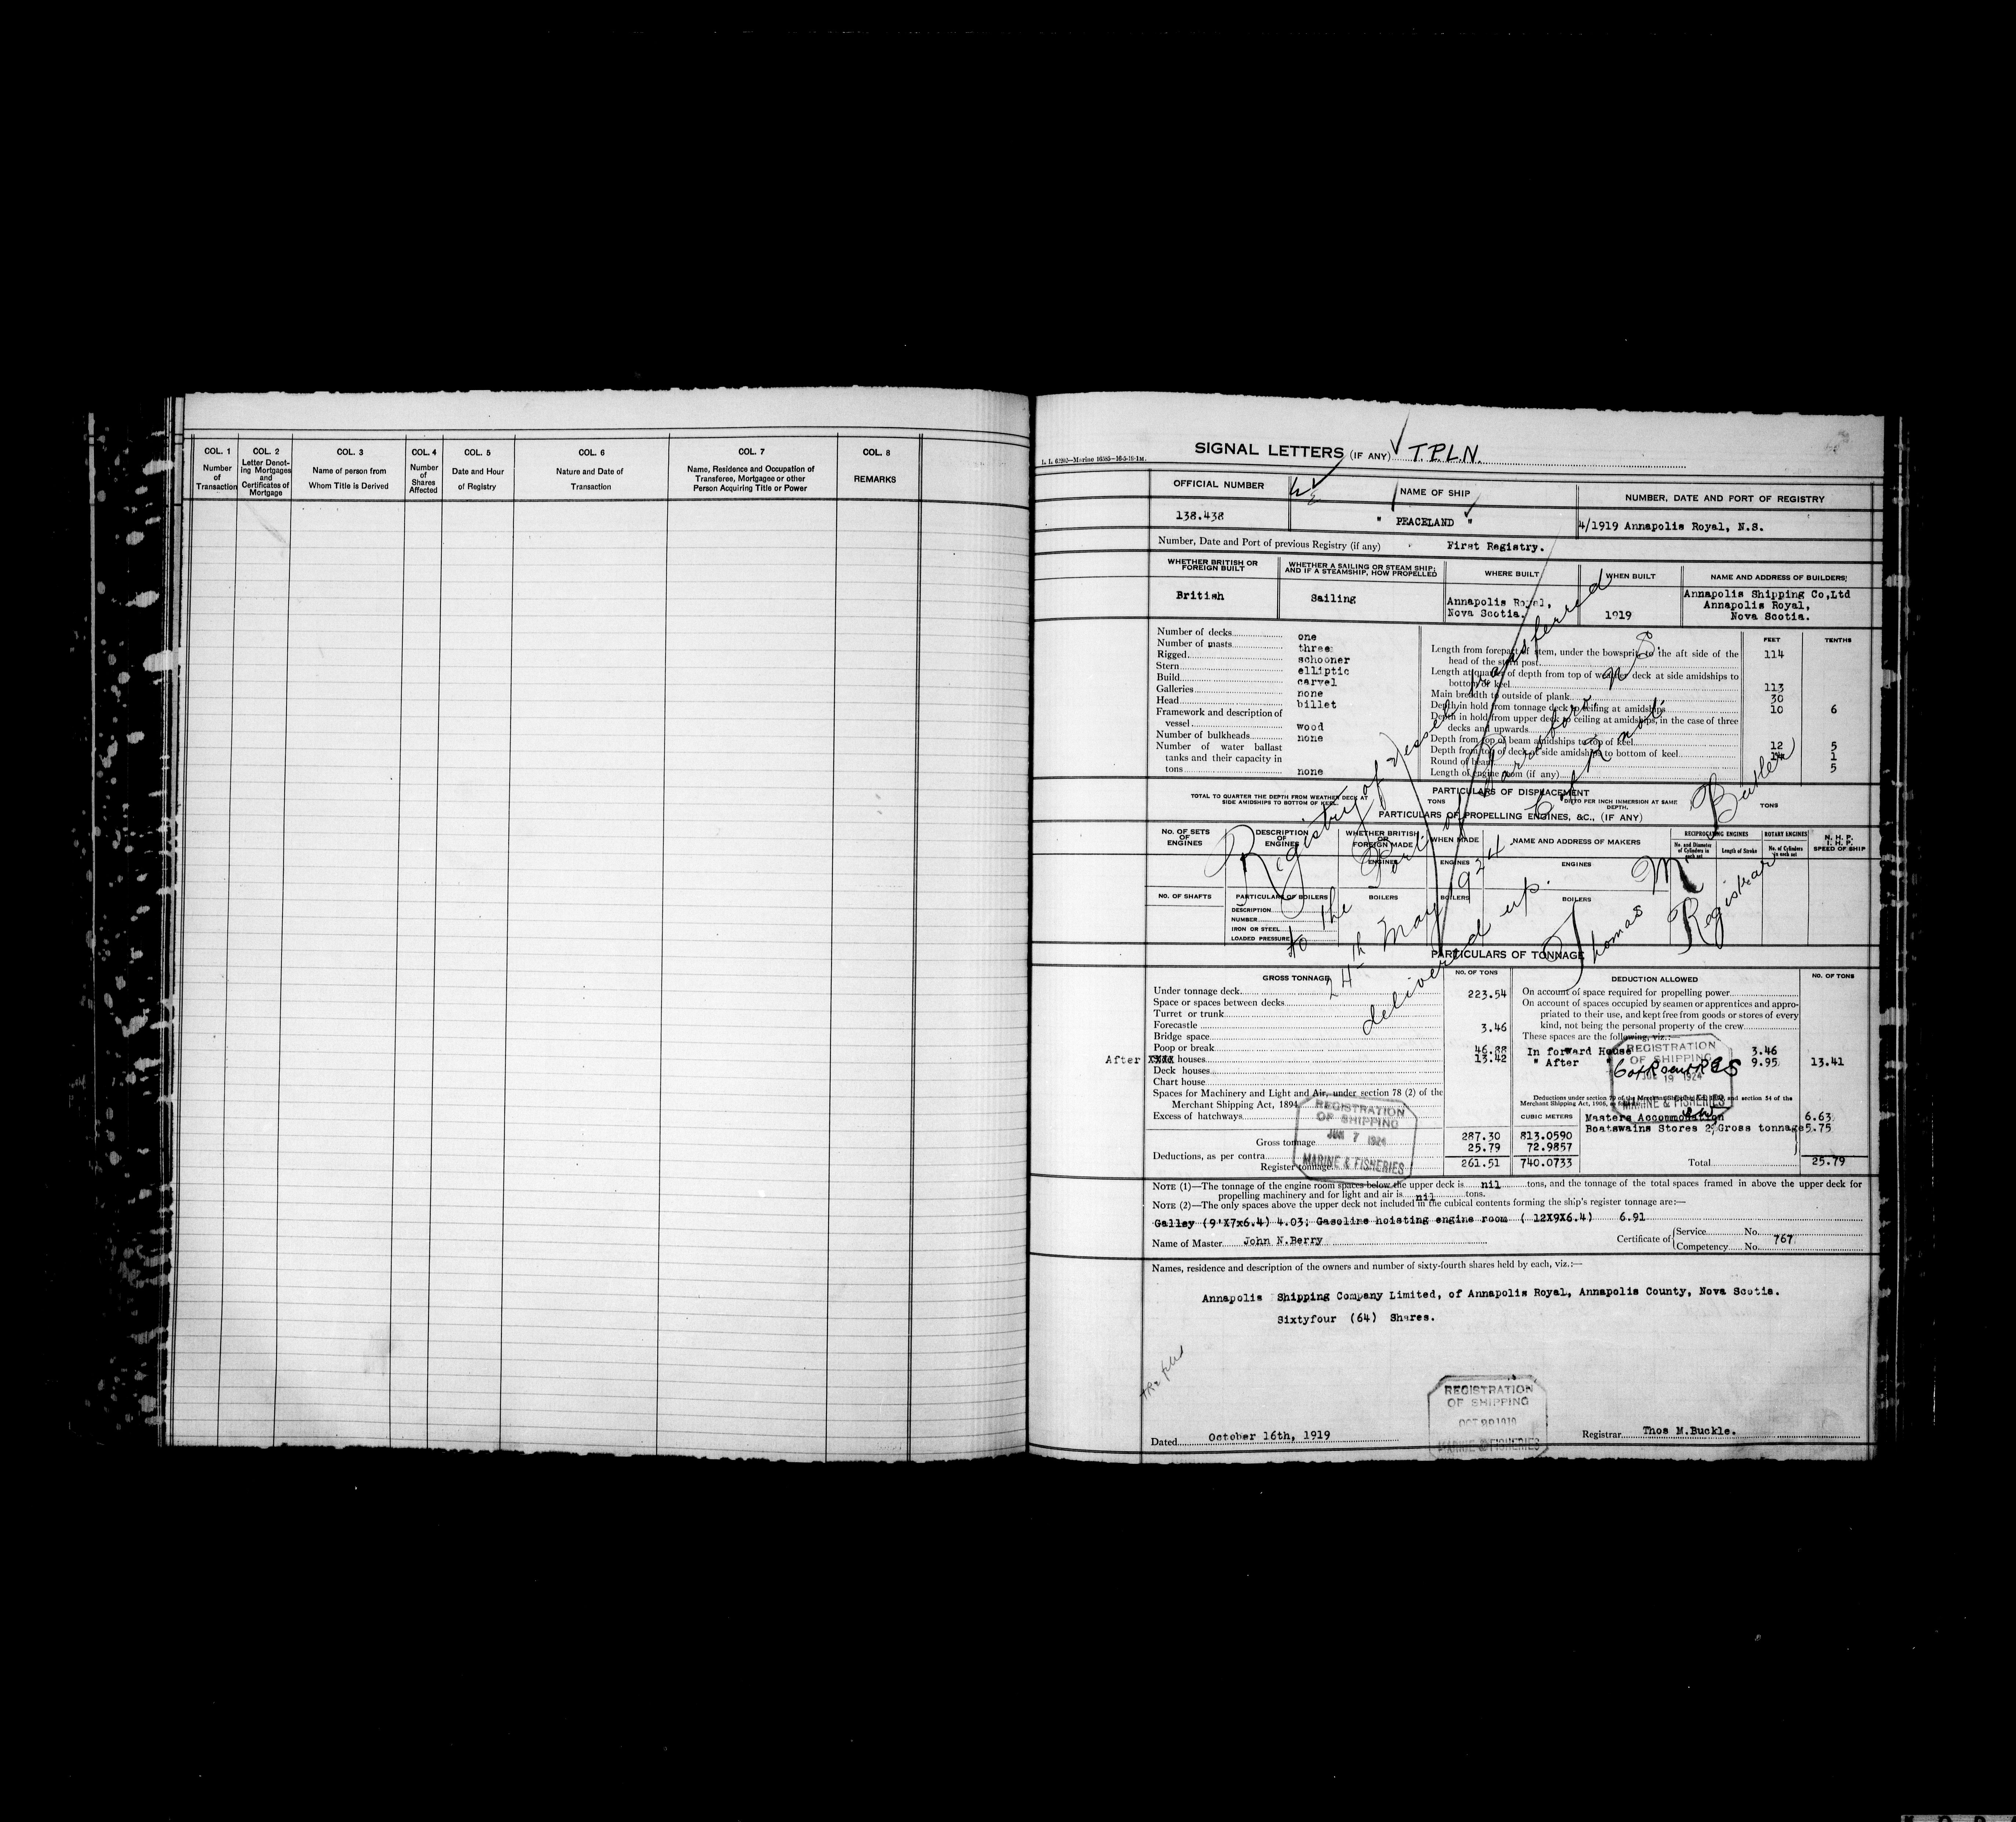 COL. 1
Number
of
Transaction
COL. 2
Letter Denot-
ing Mortgages
and
Certificates of
Mortgage
COL. 3
Name of person from
Whom Title is Derived
COL. 4
Number
of
Shares
Affected
COL. 5
Date and Hour
of Registry
COL. 6
Nature and Date of
Transaction
COL. 7
Name, Residence and Occupation of
Transferee, Mortgagee or other
Person Acquiring Title or Power
COL. 8
REMARKS
SIGNAL LETTERS (IF ANY) T.P.L.N.
OFFICIAL NUMBER
NAME OF SHIP
NUMBER, DATE AND PORT OF REGISTRY
138.438
" PEACELAND "
4/1919 Annapolis Royal, N.S.
Number, Date and Port of previous Registry (if any) First Registry.
WHETHER BRITISH OR
FOREIGN BUILT
WHETHER A SAILING OR STEAM SHIP;
AND IF A STEAMSHIP, HOW PROPELLED
WHERE BUILT
WHEN BUILT
NAME AND ADDRESS OF BUILDERS;
British
Sailing
Annapolis Royal,
Nova Scotia.
1919
Annapolis Shipping Co,Ltd
Annapolis Royal,
Nova Scotia.
Number of decks one
Number of masts three
Rigged schooner
Stern elliptic
Build carvel
Galleries none
Head billet
Framework and description of
vessel wood
Number of bulkheads none
Number of water ballast
tanks and their capacity in
tons none
FEET TENTHS
Length from forepart of stem, under the bowsprit, to the aft side of the
head of the stern post 114
Length at quarter of depth from top of weather deck at side amidships to
bottom of keel 113
Main breadth to outside of plank 30
Depth in hold from tonnage deck to ceiling at amidships 10 6
Depth in hold from upper deck to ceiling at amidships, in the case of three
decks and upwards
Depth from top of beam amidships to top of keel 12 5
Depth from top of deck at side amidships to bottom of keel 14 1
Round of beam 5
Length of engine room (if any)
PARTICULARS OF DISPLACEMENT
TOTAL TO QUARTER THE DEPTH FROM WEATHER DECK AT
SIDE AMIDSHIPS TO BOTTOM OF KEEL
TONS
DITTO PER INCH IMMERSION AT SAME
DEPTH.
TONS
PARTICULARS OF PROPELLING ENGINES, &C., (IF ANY)
No. OF SETS
OF
ENGINES
DESCRIPTION
OF
ENGINES
WHETHER BRITISH
OR
FOREIGN MADE
WHEN MADE
NAME AND ADDRESS OF MAKERS
RECIPROCATING ENGINES
No. and Diameter
of Cylinders in
each set
Length of Stroke
ROTARY ENGINES
No. of Cylinders
in each set
N. H. P.
I. H. P.
SPEED OF SHIP
ENGINES
ENGINES
ENGINES
NO. OF SHAFTS
PARTICULARS OF BOILERS
BOILERS
BOILERS
BOILERS
DESCRIPTION
NUMBER
IRON OR STEEL
LOADED PRESSURE
Registry of Vessel transferred
to the Port of Parrsboro N S.
24th May 1924 C of R not
delivered up.
Thomas M Buckler
Registrar
PARTICULARS OF TONNAGE
GROSS TONNAGE
NO. OF TONS
DEDUCTION ALLOWED
NO. OF TONS
Under tonnage deck 223.54
Space or spaces between decks
Turret or trunk
Forecastle 3.46
Bridge space
Poop or break 46.88
After houses 13.42
Deck houses
Chart house
Spaces for Machinery and Light and Air, under section 78 (2) of the
Merchant Shipping Act, 1894
Excess of hatchways
Gross tonnage 287.30 813.0590
Deductions, as per contra 25.79 72.9857
Register tonnage 261.51 740.0733
CUBIC METERS
On account of space required for propelling power
On account of spaces occupied by seamen or apprentices and appro-
priated to their use, and kept free from goods or stores of every
kind, not being the personal property of the crew
These spaces are the following, viz.:—
In forward House 3.46
" After " 9.95 13.41
Masters Accommodation 6.63
Boatswains Stores 2% Gross tonnage 5.75
Total 25.79
REGISTRATION
OF SHIPPING
JUL 19 1924
MARINE & FISHERIES
REGISTRATION
OF SHIPPING
JUN 7 1924
MARINE & FISHERIES
NOTE (1)—The tonnage of the engine room spaces below the upper deck is nil tons, and the tonnage of the total spaces framed in above the upper deck for
propelling machinery and for light and air is nil tons.
NOTE (2)—The only spaces above the upper deck not included in the cubical contents forming the ship's register tonnage are:—
Galley (9'X7x6.4) 4.03; Gasoline hoisting engine room ( 12X9X6.4) 6.91
Name of Master John N.Berry
Certificate of
Service No.
Competency No. 767
Names, residence and description of the owners and number of sixty-fourth shares held by each, viz.:—
Annapolis Shipping Company Limited, of Annapolis Royal, Annapolis County, Nova Scotia.
Sixtyfour (64) Shares.
REGISTRATION
OF SHIPPING
OCT 20 1919
MARINE & FISHERIES
Dated October 16th, 1919
Registrar Thos M.Buckle.